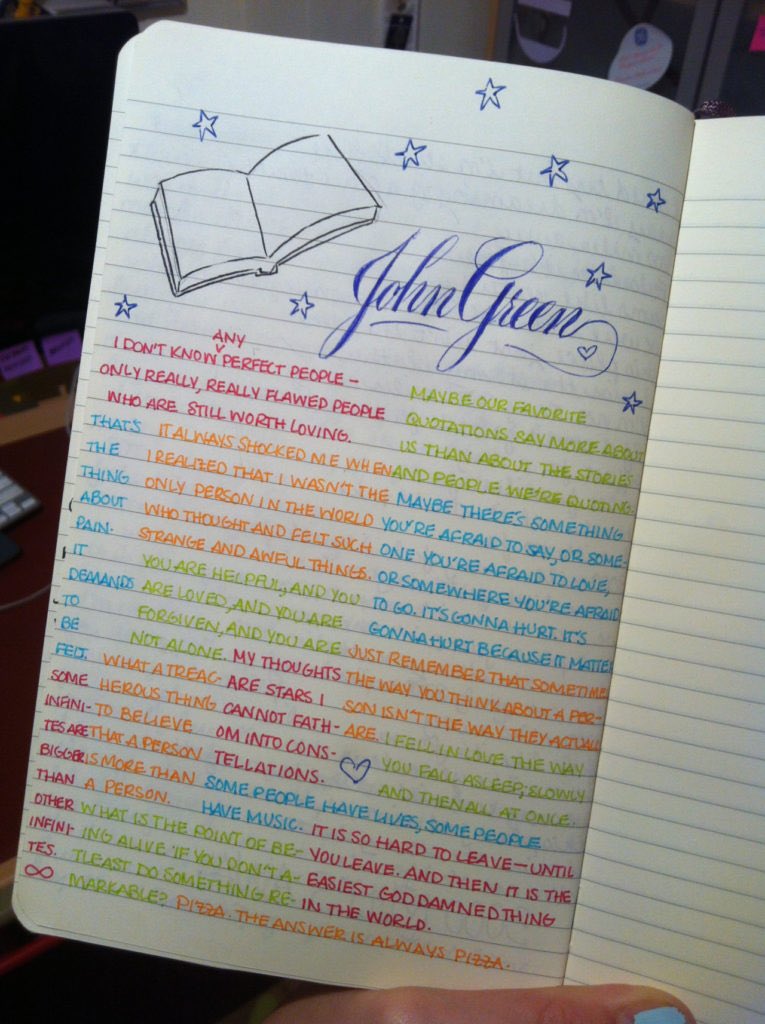 John Green
I DON'T KNOW ANY PERFECT PEOPLE –
ONLY REALLY, REALLY FLAWED PEOPLE
WHO ARE STILL WORTH LOVING.
MAYBE OUR FAVORITE
QUOTATIONS SAY MORE ABOUT
US THAN ABOUT THE STORIES
AND PEOPLE WE'RE QUOTING.
THAT'S
THE
THING
ABOUT
PAIN.
IT
DEMANDS
TO
BE
FELT.
IT ALWAYS SHOCKED ME WHEN
I REALIZED THAT I WASN'T THE
ONLY PERSON IN THE WORLD
WHO THOUGHT AND FELT SUCH
STRANGE AND AWFUL THINGS.
MAYBE THERE'S SOMETHING
YOU'RE AFRAID TO SAY, OR SOME-
ONE YOU'RE AFRAID TO LOVE,
OR SOMEWHERE YOU'RE AFRAID
TO GO. IT'S GONNA HURT. IT'S
GONNA HURT BECAUSE IT MATTE
YOU ARE HELPFUL, AND YOU
ARE LOVED, AND YOU ARE
FORGIVEN, AND YOU ARE
NOT ALONE.
JUST REMEMBER THAT SOMETIME
THE WAY YOU THINK ABOUT A PER-
SON ISN'T THE WAY THEY ACTUALL
ARE.
SOME
INFINI-
TES ARE
BIGGER
THAN
OTHER
INFINI-
TES.
∞
WHAT A TREAC-
HEROUS THING
TO BELIEVE
THAT A PERSON
IS MORE THAN
A PERSON.
MY THOUGHTS
ARE STARS I
CANNOT FATH-
OM INTO CONS-
TELLATIONS.
I FELL IN LOVE THE WAY
YOU FALL ASLEEP; SLOWLY
AND THEN ALL AT ONCE.
SOME PEOPLE HAVE LIVES, SOME PEOPLE
HAVE MUSIC.
WHAT IS THE POINT OF BE-
ING ALIVE IF YOU DON'T A-
TLEAST DO SOMETHING RE-
MARKABLE?
IT IS SO HARD TO LEAVE—UNTIL
YOU LEAVE. AND THEN IT IS THE
EASIEST GODDAMNED THING
IN THE WORLD.
PIZZA. THE ANSWER IS ALWAYS PIZZA.